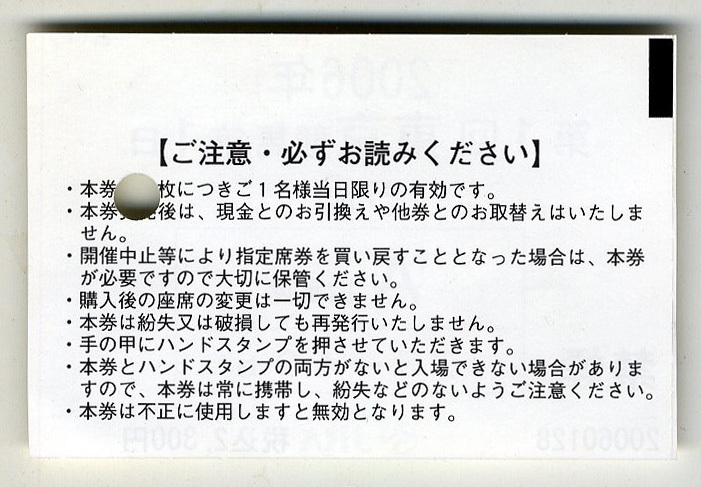 【ご注意・必ずお読みください】
・本券 枚につきご1名様当日限りの有効です。
・本券 後は、現金とのお引換えや他券とのお取替えはいたしま
せん。
・開催中止等により指定席券を買い戻すこととなった場合は、本券
が必要ですので大切に保管ください。
・購入後の座席の変更は一切できません。
・本券は紛失又は破損しても再発行いたしません。
・手の甲にハンドスタンプを押させていただきます。
・本券とハンドスタンプの両方がないと入場できない場合がありま
すので、本券は常に携帯し、紛失などのないようご注意ください。
・本券は不正に使用しますと無効となります。